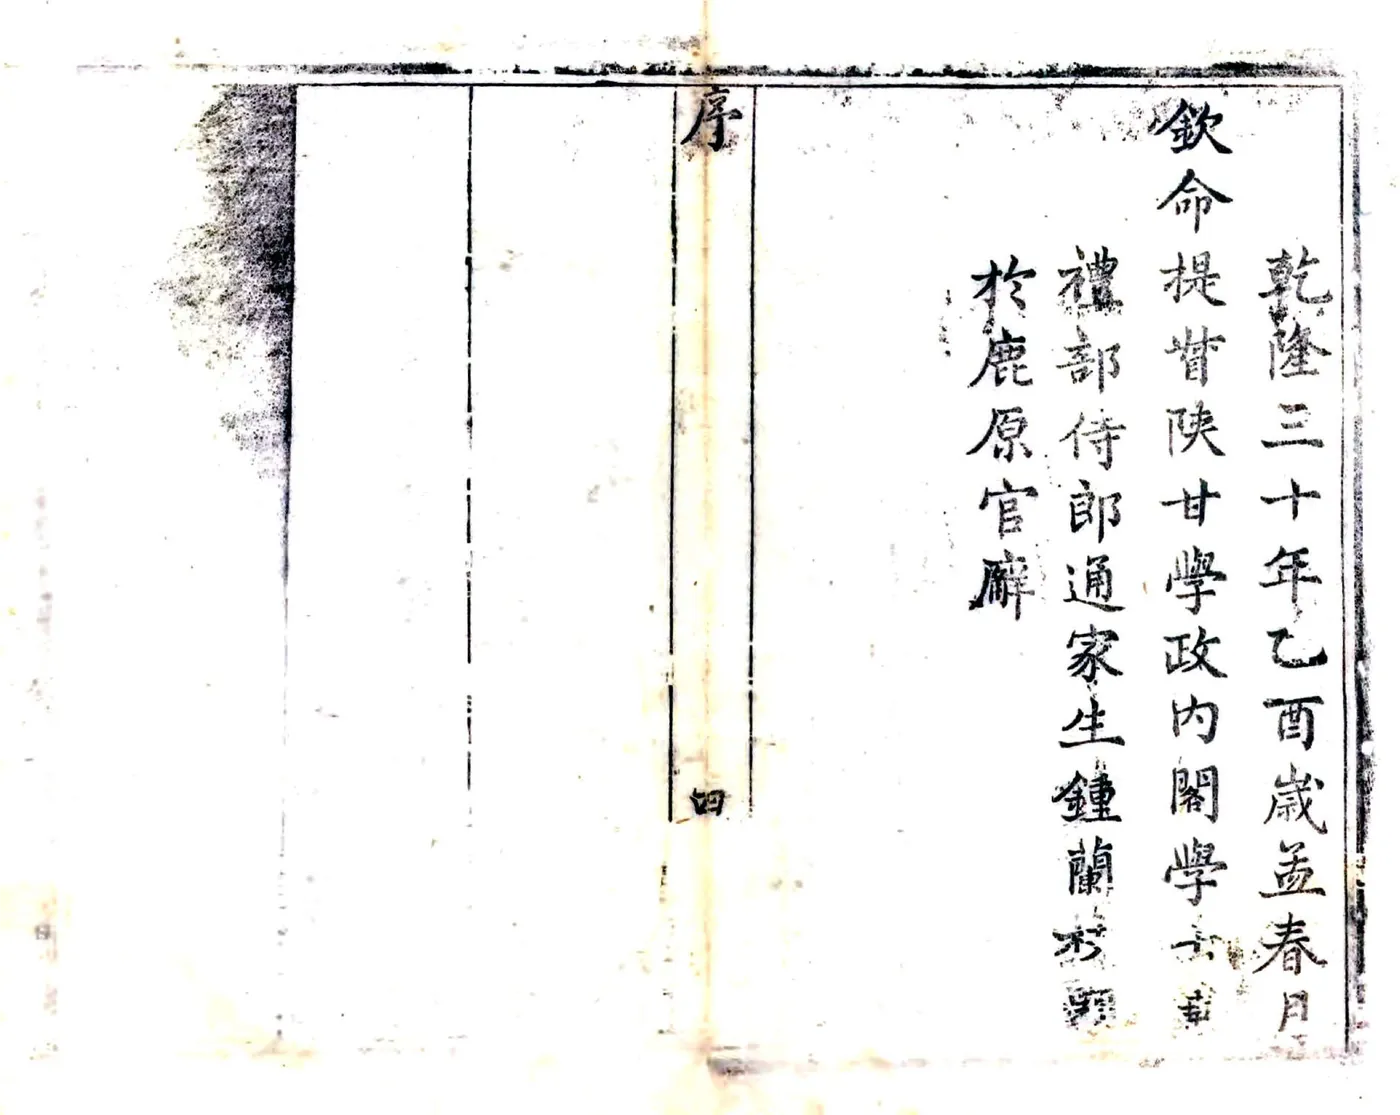 乾隆三十年乙酉歲孟春月
欽命提督陝甘學政内閣學士兼
禮部侍郎通家生鍾蘭枝題
於鹿原官廨
序
四